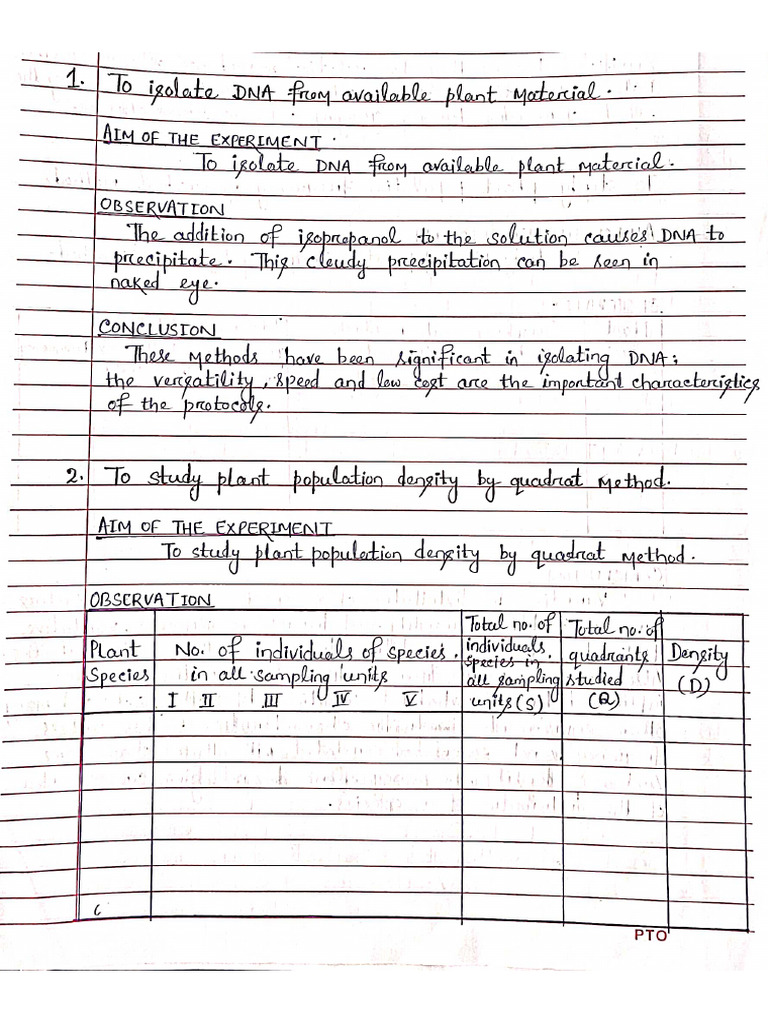 1. To isolate DNA from available plant Material.
AIM OF THE EXPERIMENT.
To isolate DNA from available plant material.
OBSERVATION
The addition of isopropanol to the solution causes DNA to
precipitate. This cloudy precipitation can be seen in
naked eye.
CONCLUSION
These Methods have been significant in isolating DNA;
the versatility, speed and low cost are the important characteristics
of the protocols.
2. To study plant population density by quadrat Method.
AIM OF THE EXPERIMENT
To study plant population density by quadrat method.
OBSERVATION
Plant
Species
No. of individuals of species.
in all sampling units
I II III IV V
Total no. of
individuals.
species in
all sampling
units (S)
Total no. of
quadrants
studied
(Q)
Density
(D)
PTO